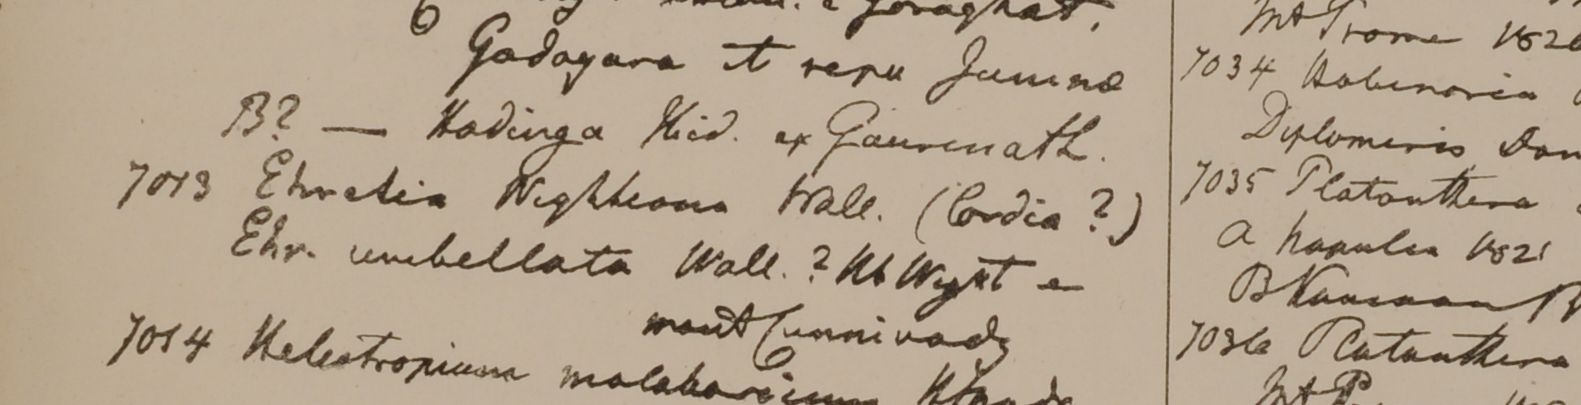 Goraghat.
Gadagara et repu Juminæ
B? — Hadinga Hid. ex Gaurenath.
7013 Ehretia Wightiana Wall. (Cordia?)
Ehr. umbellata Wall.? Hb Wight e
mont Cunnivady
7014 Heliotropium malabaricum
Mt Prome 1826
7034 Habenaria
Diplomeris Don
7035 Platanthera
a Napalia 1821
B Kamaon
7036 Platanthera